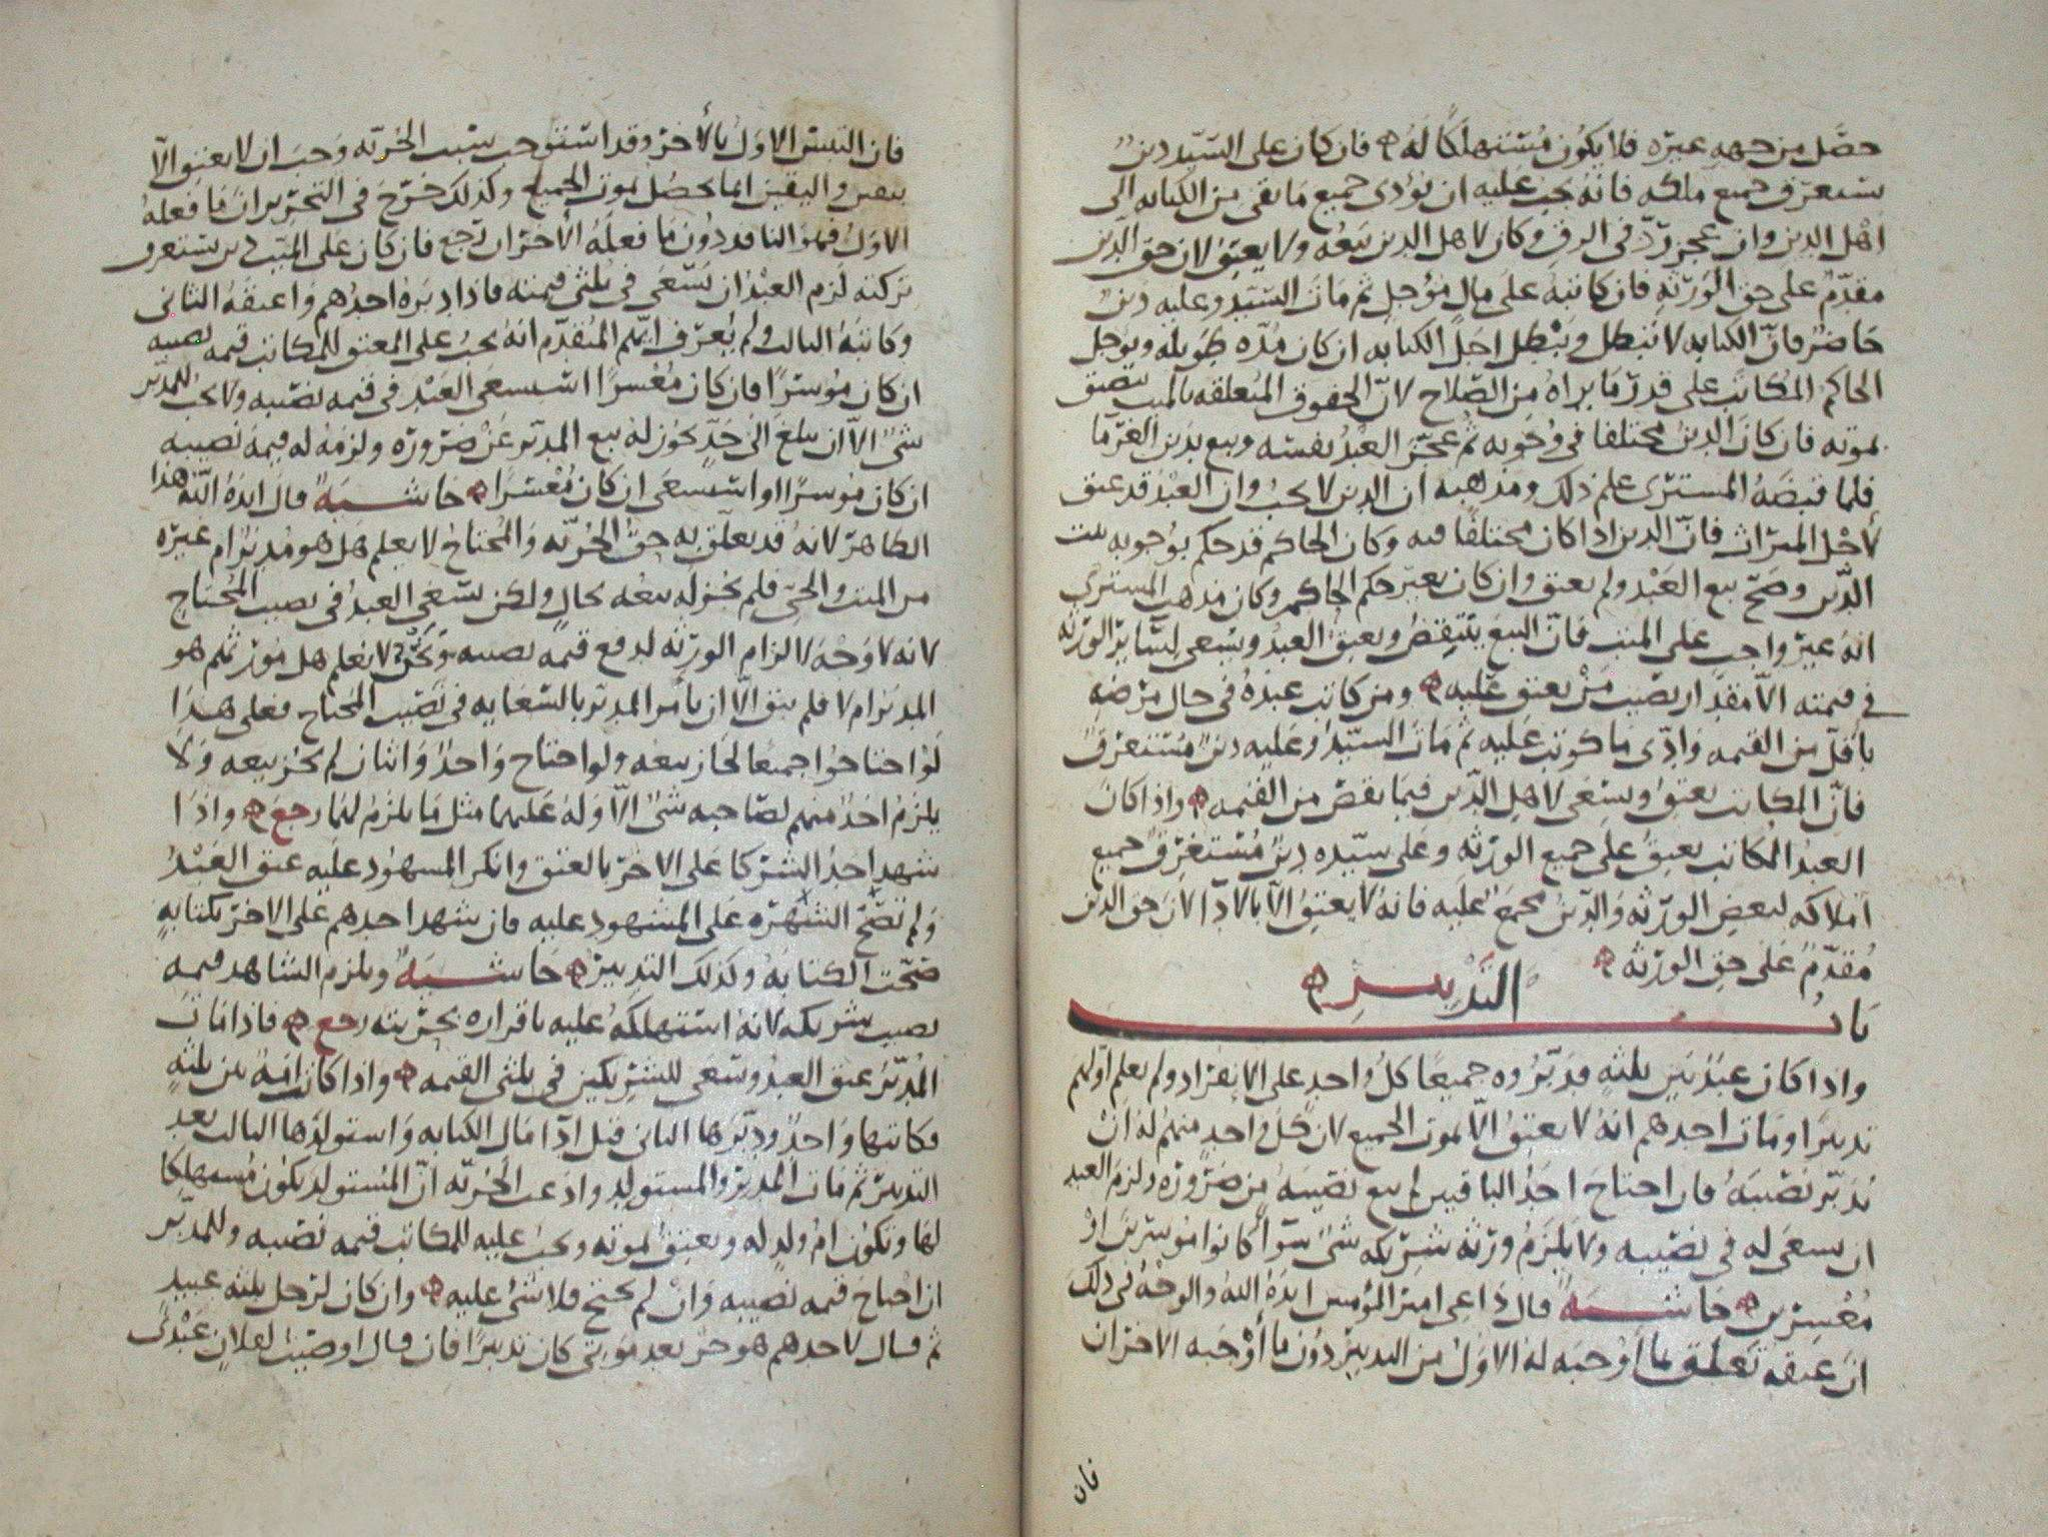 حصّل من جهه غيره فلا يكون مستهلكًا له فان كان على السيّد دين
يستغرق جميع ملكه فانه يجب عليه ان يؤدى جميع ما بقى من الكتابه الى
اهل الدين وان عجز ردّ فى الرق وكان لاهل الدين بيعه ولا يعتق لان حق الدين
مقدّم على حق الورثه فان كاتبه على مال مؤجل ثم مات السيّد وعليه دين
حاضر فانّ الكتابه لا تبطل ويبطل اجل الكتابه ان كان مدّه طويله ويؤجل
الحاكم المكاتب على قدر ما يراه من الصلاح لانّ الحقوق المتعلقه بالميت تضيق
بموته فان كان الدين مختلفا فى وجوبه ثم عجّز العبد نفسه وبيع بدين الغرما
فلما قبضه المشترى علم ذلك ومذهبه ان الدين لا يجب وان العبد قد عتق
لاجل الميراث فانّ الدين اذا كان مختلفًا فيه وكان الحاكم قد حكم بوجوبه ثبت
الدّين وصحّ بيع العبد ولم يعتق وان كان بغير حكم الحاكم وكان مذهب المشترى
انه غير واجب على الميت فانّ البيع ينتقض ويعتق العبد ويسعى لسائر الورثه
فى قيمته الاّ مقدار نصيب من يعتق عليه ومن كاتب عبده فى حال مرضه
باقلّ من القيمه وادّى ما كوتب عليه ثم مات السيّد وعليه دين مستغرق
فانّ المكاتب يعتق ويسعى لاهل الدّين فيما نقص من القيمه واذا كان
العبد المكاتب يعتق على جميع الورثه وعلى سيّده دين مستغرق جميع
املاكه لبعض الورثه والدين مجمع عليه فانه لا يعتق الاّ بالادآ لان حق الدين
مقدّم على حق الورثه
باب التدبير
واذا كان عبد بين ثلثه فدبّروه جميعًا كل واحد على الانفراد ولم يعلم اوّلهم
تدبيرًا ومات احدهم انه لا يعتق الاّ بموت الجميع لان كل واحد منهم له ان
يدبّر نصيبه فان احتاج احد الباقيين لم يبع نصيبه من ضروره ولزم العبد
ان يسعى له فى نصيبه ولا يلزم ورثه شريكه شى سوآ كانوا موسرين او
معسرين حاشيه قال داعى امير المؤمنين ايده الله والوجه فى ذلك
انّ عتقه تعلق بما أوجبه له الاول من التدبير دون ما أوجبه الاخران
فان
فان التبس الاول بالأخر وقد استوجب سبب الحريّه وجب ان لا يعتق الاّ
بيقين واليقين انما يحصل بموت الجميع وكذلك خرّج فى التحرير ان ما فعله
الاول فهو النافد دون ما فعله الأخران رجع فان كان على الميت دين يستغرق
تركته لزم العبد ان يسعى فى ثلثى قيمته فاذا دبره احدهم واعتقه الثانى
وكاتبه الثالث ولم يعرف ايّهم المتقدّم انه يجب على المعتق للمكاتب قيمه نصيبه
ان كان موسرًا فان كان معسرًا استسعى العبد فى قيمه نصيبه ولا يجب للمدبّر
شى الاّ ان يبلغ الى حدّ يجوز له بيع المدبّر عن ضروره ولزمه له قيمه نصيبه
ان كان موسرًا او استسعى ان كان معسرًا حاشيه قال ايده الله هذا
الظاهر لانه قد تعلّق به حق الحريّه والمحتاج لا يعلم هل هو مدبر ام غيره
من الميت والحىّ فلم يجز له بيعه بحال ولكن يسعى العبد فى نصيب المحتاج
لانه لا وجه لالزام الورثه لدفع قيمه نصيبه ونحن لا نعلم هل مورثهم هو
المدبر ام لا فلم يبق الاّ ان يأمر المدبّر بالسعايه فى نصيب المحتاج فعلى هذا
لو احتاجوا جميعًا لجاز بيعه ولو احتاج واحد واثنان لم يجز بيعه ولا
يلزم احد منهم لصاحبه شى الاّ وله عليهما مثل ما يلزم لهما رجع واذا
شهد احد الشركا على الاخر بالعتق وانكر المشهود عليه عتق العبد
ولم تصحّ الشهره على المشهود عليه فان شهد احدهم على الاخر بكتابه
صحّت الكتابه وكذلك التدبير حاشيه ويلزم الشاهد قيمه
نصيب شريكه لانه استهلكه عليه باقراره بحريته رجع فاذا مات
المدبّر عتق العبد وسعى للشريكين فى ثلثى القيمه واذا كان امه بين ثلثه
فكاتبها واحد ودبّرها الثانى قبل ادآ مال الكتابه واستولدها الثالث بعد
التدبير ثم مات المدبّر والمستولد وادعت الحريّه انّ المستولد يكون مستهلكا
لها وتكون ام ولد له وتعتق بموته ويجب عليه للمكاتب قيمه نصيبه وللمدبّر
ان احتاج قيمه نصيبه وان لم يحتج فلا شى عليه وان كان لرجل ثلثه عبيد
ثم قال لاحدهم هو حر بعد موتى كان تدبيرًا فان قال اوصيت لفلان عبدى